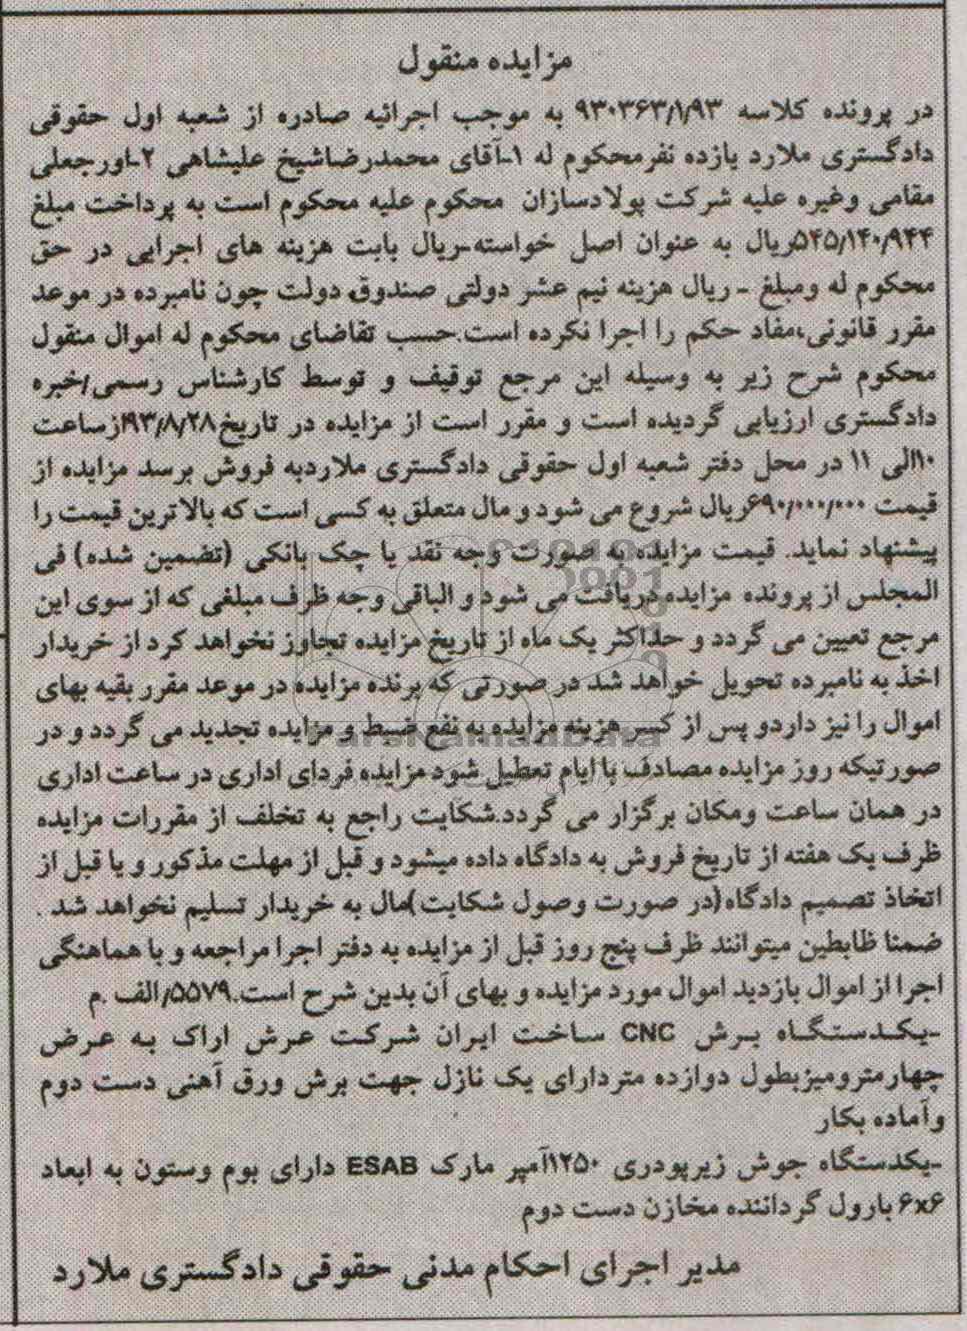 مزایده منقول
در پرونده کلاسه ۹۳۰۳۶۳/۱/۹۳ به موجب اجرائیه صادره از شعبه اول حقوقی
دادگستری ملارد یازده نفرمحکوم له ۱-آقای محمدرضاشیخ علیشاهی ۲-اورجعلی
مقامی وغیره علیه شرکت پولادسازان محکوم علیه محکوم است به پرداخت مبلغ
۵۴۵/۱۴۰/۹۴۴ریال به عنوان اصل خواسته-ریال بابت هزینه های اجرایی در حق
محکوم له ومبلغ - ریال هزینه نیم عشر دولتی صندوق دولت چون نامبرده در موعد
مقرر قانونی،مفاد حکم را اجرا نکرده است.حسب تقاضای محکوم له اموال منقول
محکوم شرح زیر به وسیله این مرجع توقیف و توسط کارشناس رسمی/خبره
دادگستری ارزیابی گردیده است و مقرر است از مزایده در تاریخ۹۳/۸/۲۸ازساعت
۱۰الی ۱۱ در محل دفتر شعبه اول حقوقی دادگستری ملاردبه فروش برسد مزایده از
قیمت ۶۹۰/۰۰۰/۰۰۰ریال شروع می شود و مال متعلق به کسی است که بالاترین قیمت را
پیشنهاد نماید. قیمت مزایده به صورت وجه نقد یا چک بانکی (تضمین شده) فی
المجلس از پرونده مزایده دریافت می شود و الباقی وجه ظرف مبلغی که از سوی این
مرجع تعیین می گردد و حداکثر یک ماه از تاریخ مزایده تجاوز نخواهد کرد از خریدار
اخذ به نامبرده تحویل خواهد شد در صورتی که برنده مزایده در موعد مقرر بقیه بهای
اموال را نیز داردو پس از کسر هزینه مزایده به نفع ضبط و مزایده تجدید می گردد و در
صورتیکه روز مزایده مصادف با ایام تعطیل شود مزایده فردای اداری در ساعت اداری
در همان ساعت ومکان برگزار می گردد.شکایت راجع به تخلف از مقررات مزایده
ظرف یک هفته از تاریخ فروش به دادگاه داده میشود و قبل از مهلت مذکور و یا قبل از
اتخاذ تصمیم دادگاه(در صورت وصول شکایت)مال به خریدار تسلیم نخواهد شد .
ضمنا ظابطین میتوانند ظرف پنج روز قبل از مزایده به دفتر اجرا مراجعه و با هماهنگی
اجرا از اموال بازدید اموال مورد مزایده و بهای آن بدین شرح است.۵۵۷۹/الف .م
-یکدستگاه برش CNC ساخت ایران شرکت عرش اراک به عرض
چهارمترومیزبطول دوازده متردارای یک نازل جهت برش ورق آهنی دست دوم
وآماده بکار
-یکدستگاه جوش زیرپودری ۱۲۵۰آمپر مارک ESAB دارای بوم وستون به ابعاد
۶x۶ بارول گرداننده مخازن دست دوم
مدیر اجرای احکام مدنی حقوقی دادگستری ملارد